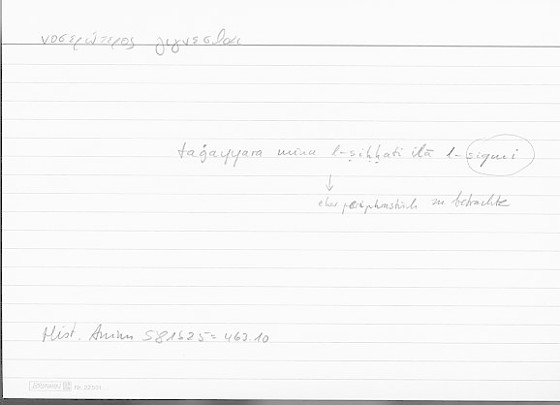 νοσερώτερος γίγνεσθαι
taġayyara mina l-ṣiḥḥati ilā l-siqmi
↓
eher periphrastisch zu betrachten
Hist. Anim 581b25 = 463.10